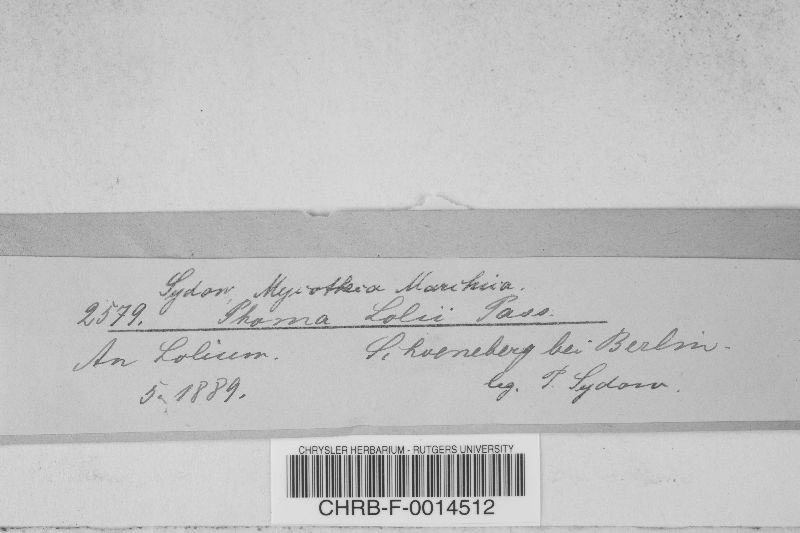 Sydow, Mycothica Marchica.
2579. Phoma Lolii Pass.
An Lolium. Schoeneberg bei Berlin.
5. 1889. leg. P. Sydow.
CHRYSLER HERBARIUM - RUTGERS UNIVERSITY
CHRB-F-0014512